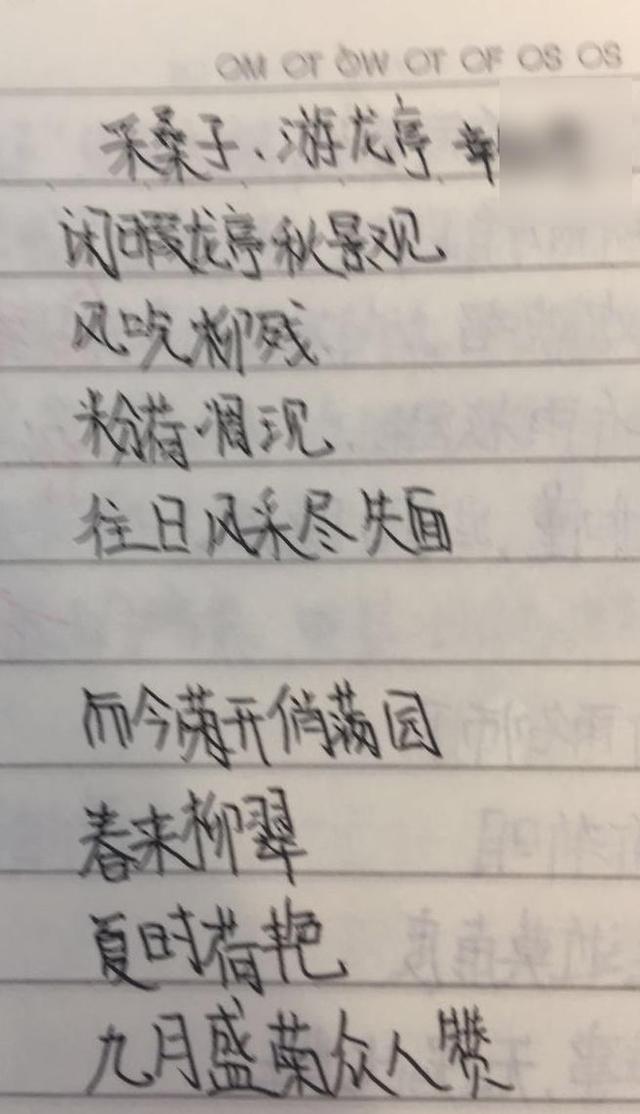 OM OT OW OT OF OS OS
采桑子、游龙亭
闲暇龙亭秋景观
风吹柳残
粉荷凋现
往日风采尽失面
而今菊开俏满园
春来柳翠
夏时荷艳
九月盛菊众人赞